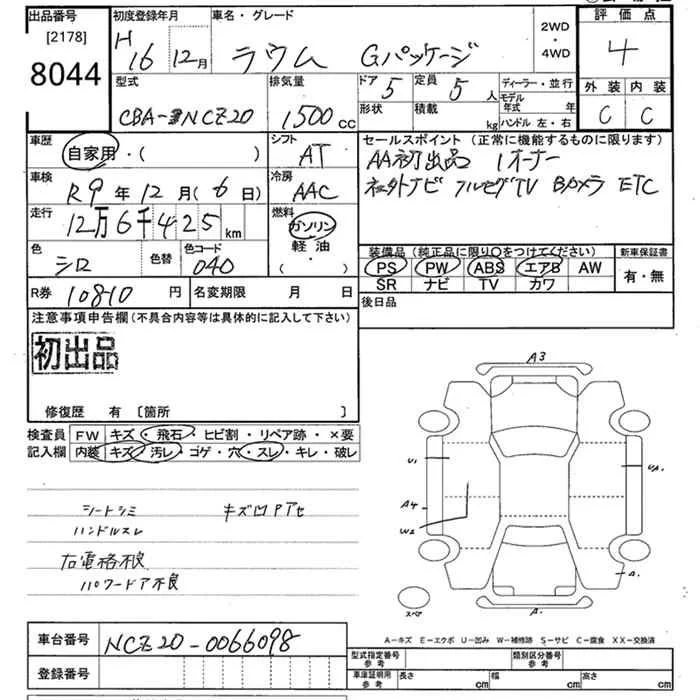 出品番号
[2178]
8044
初度登録年月
H 16年 12月
車名・グレード
ラウム Gパッケージ
2WD
・
4WD
評価点
4
外装 内装
C C
型式
CBA-NCZ20
排気量
1500cc
ドア 5
定員 5人
形状
積載 kg
ディーラー・並行
モデル年式 年
ハンドル 左・右
車歴
自家用・( )
シフト
AT
セールスポイント(正常に機能するものに限ります)
AA初出品 1オーナー
社外ナビ フルセグTV Bカメラ ETC
車検
R9年12月(6日)
冷房
AAC
走行
12万6千425km
燃料
ガソリン
軽油
( ・ )
色
シロ
色替
色コード
040
装備品(純正品に限り○をつけてください)
PS PW ABS エアB AW
SR ナビ TV カワ
新車保証書
有・無
R券 10810円
名変期限 月 日
後日品
注意事項申告欄(不具合内容等は具体的に記入して下さい)
初出品
修復歴 有 [箇所 ]
検査員
記入欄
FW キズ・飛石・ヒビ割・リペア跡・×要
内装 キズ・汚レ・コゲ・穴・スレ・キレ・破レ
シートシミ キズ凹アセ
ハンドルスレ
右電格不良
パワードア不良
A3
U1
A4
W2
A.
A.
スペア
A-キズ E-エクボ U-凹み W-補修跡 S-サビ C-腐食 XX-交換済
車台番号 NCZ20-0066098
登録番号
型式指定番号
参考
類別区分番号
参考
車庫証明用
参考
長さ cm 幅 cm 高さ cm